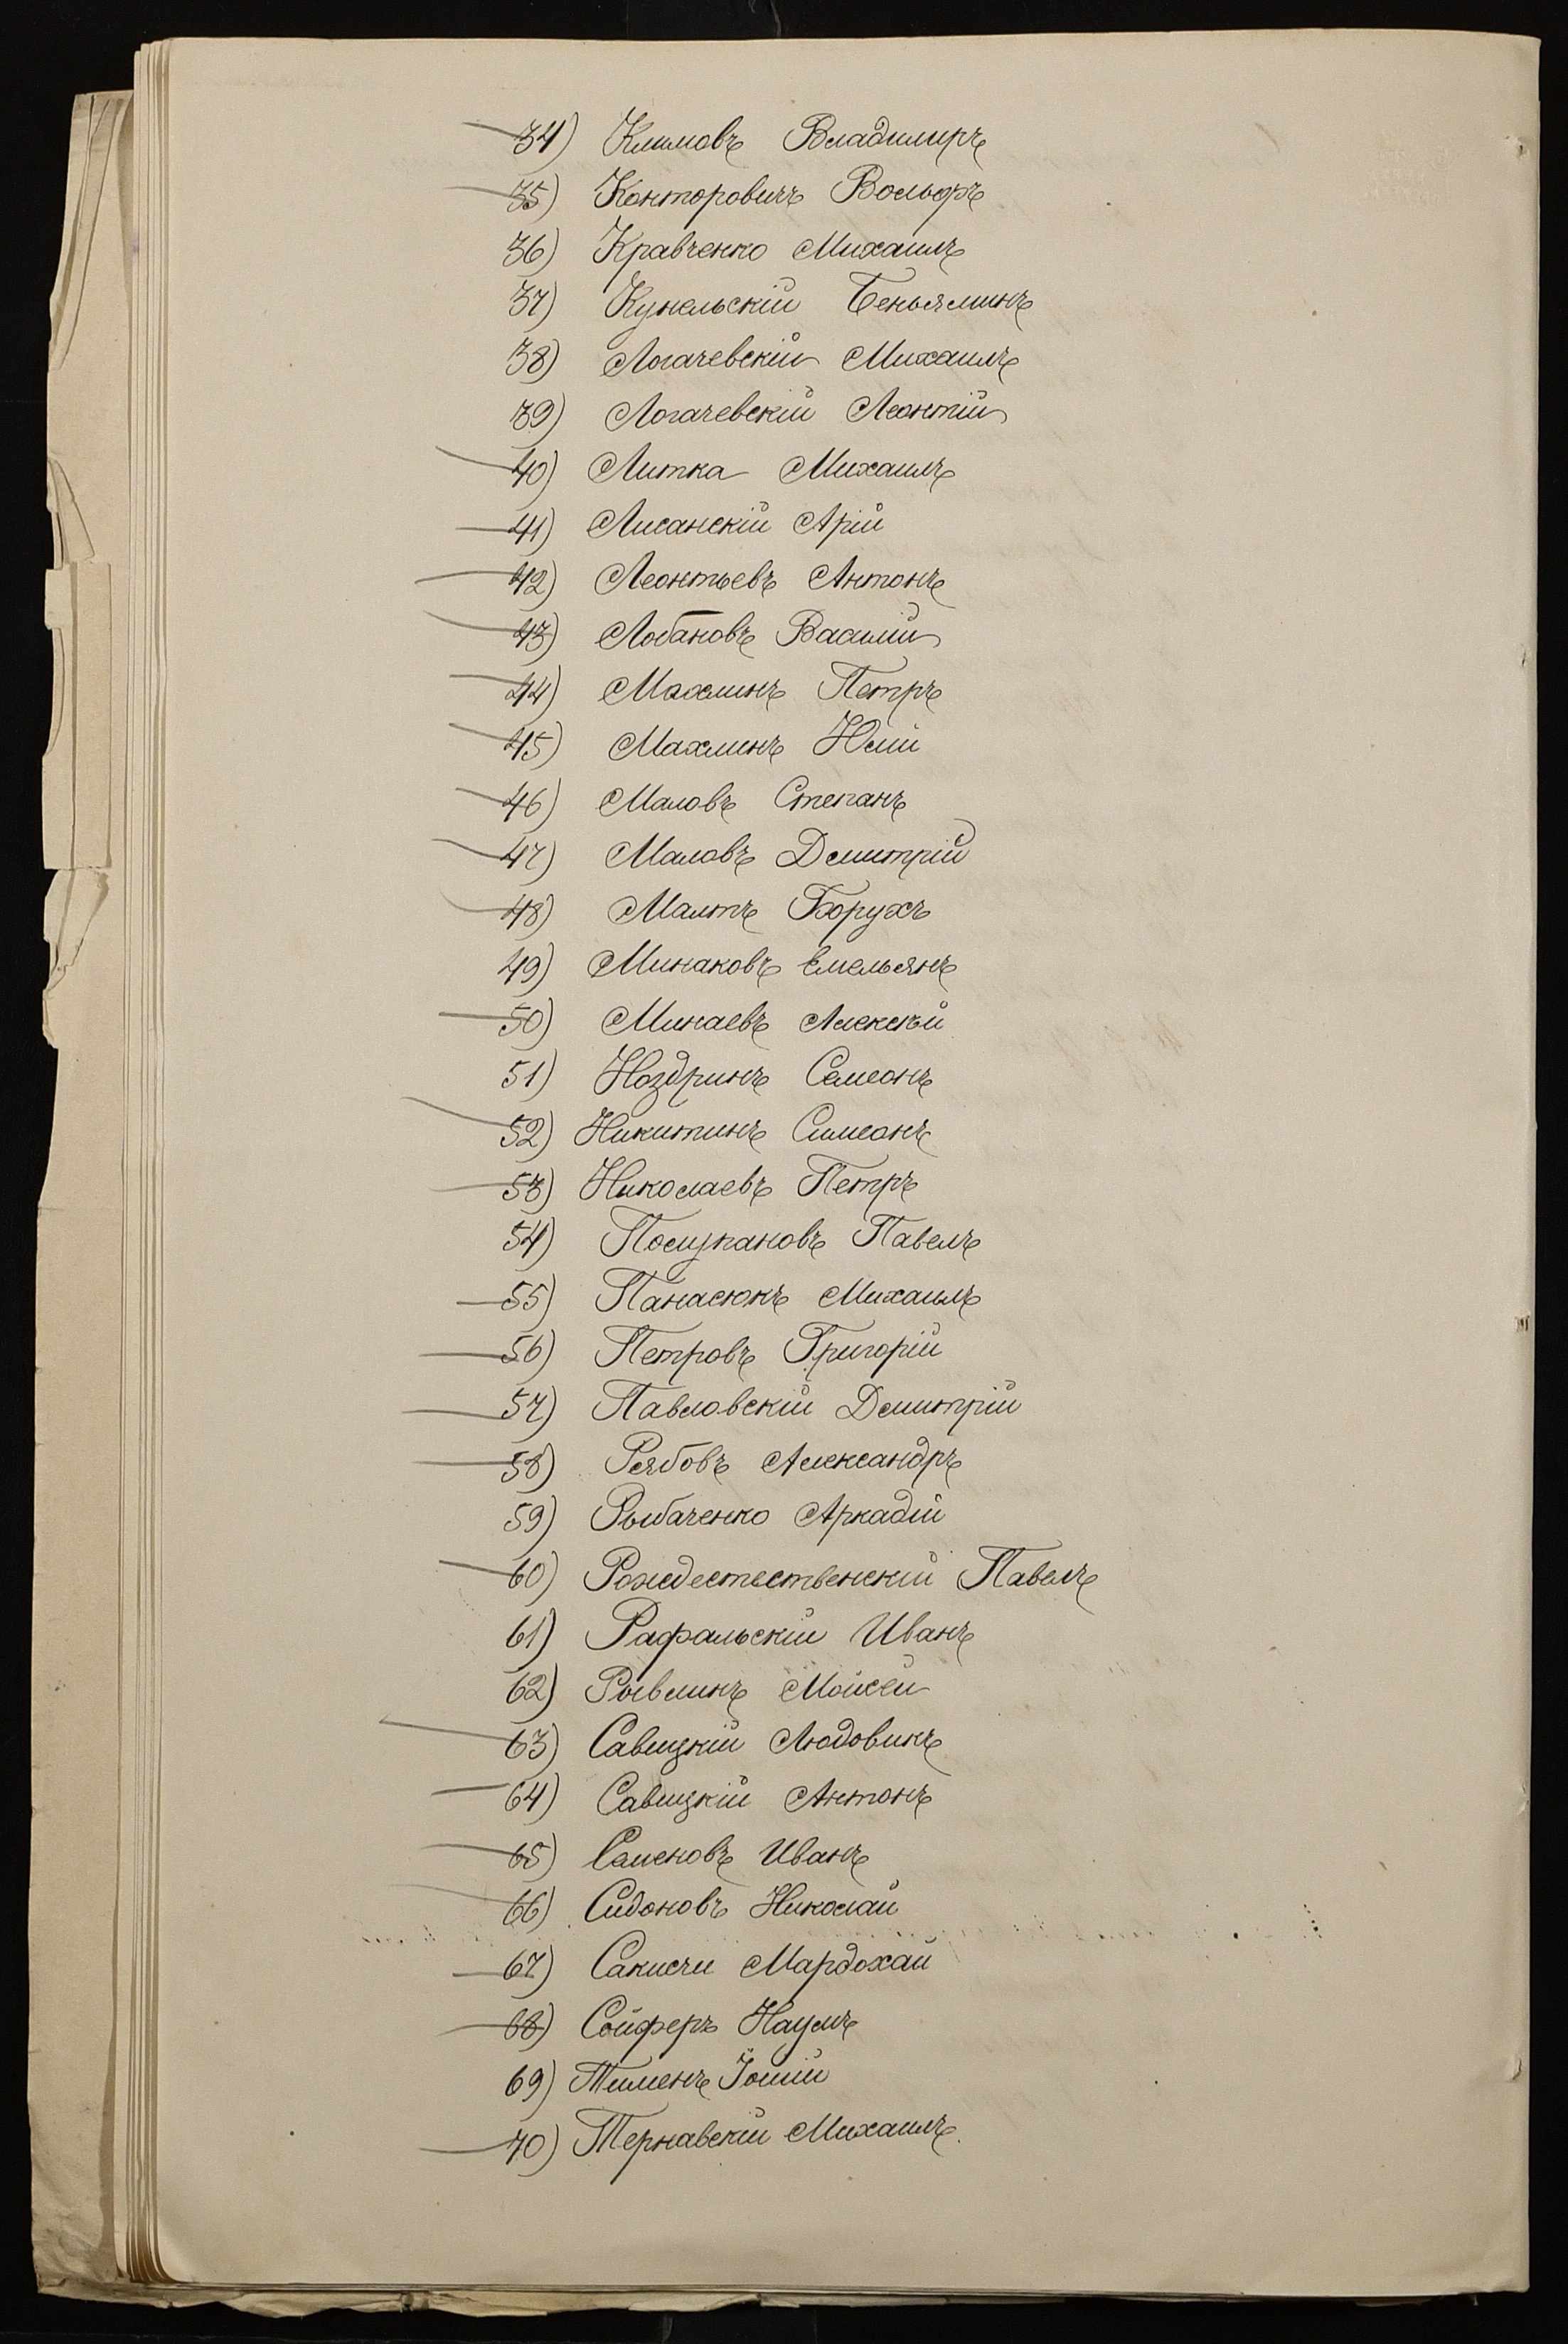 34) Климовъ Владимиръ
35) Конторовичъ Вольфъ
36) Кравченко Михаилъ
37) Кунельскій Беньяминъ
38) Логачевскій Михаилъ
39) Логачевскій Леонтій
40) Литка Михаилъ
41) Лисанскій Арій
42) Леонтьевъ Антонъ
43) Лобановъ Василій
44) Махлинъ Петръ
45) Махлинъ Юлій
46) Маловъ Степанъ
47) Маловъ Дмитрій
48) Малтъ Борухъ
49) Минаковъ Емельянъ
50) Минаевъ Алексѣй
51) Ноздринъ Семеонъ
52) Никитинъ Симеонъ
53) Николаевъ Петръ
54) Павелъ
55) Панасюкъ Михаилъ
56) Петровъ Григорій
57) Павловскій Дмитрій
58) Рябовъ Александръ
59) Рыбаченко Аркадій
60) Рождественскій Павелъ
61) Рафальскій Иванъ
62) Рывлинъ Мойсей
63) Савицкій Людовикъ
64) Савицкій Антонъ
65) Семеновъ Иванъ
66) Сидоновъ Николай
67) Мардохай
68) Сойферъ Наумъ
69) Тименъ
70) Тернавскій Михаилъ.